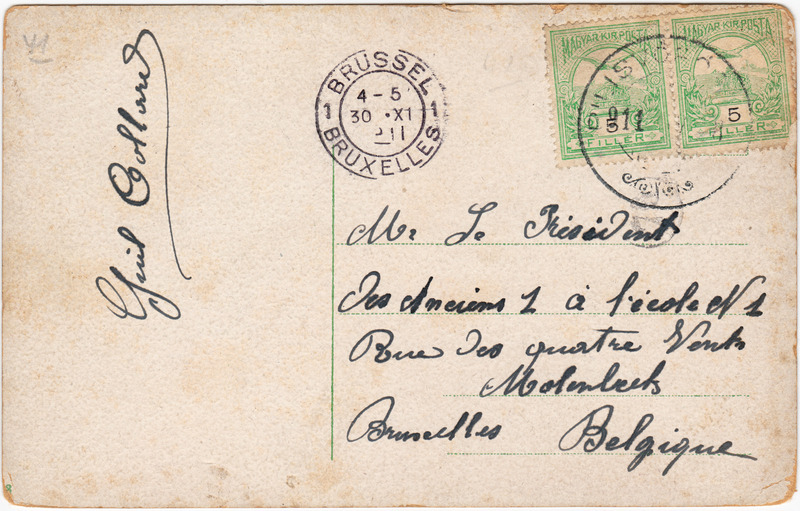 41
Guil Collard
BRUSSEL
1 1
4-5
30 · XI
11
BRUXELLES
MAGYAR KIR. POSTA
5
FILLER
MAGYAR KIR. POSTA
5
FILLER
911
Mr Le Président
des Anciens 1 à l'école N 1
Rue des quatre Vents
Molenbeek
Bruxelles Belgique